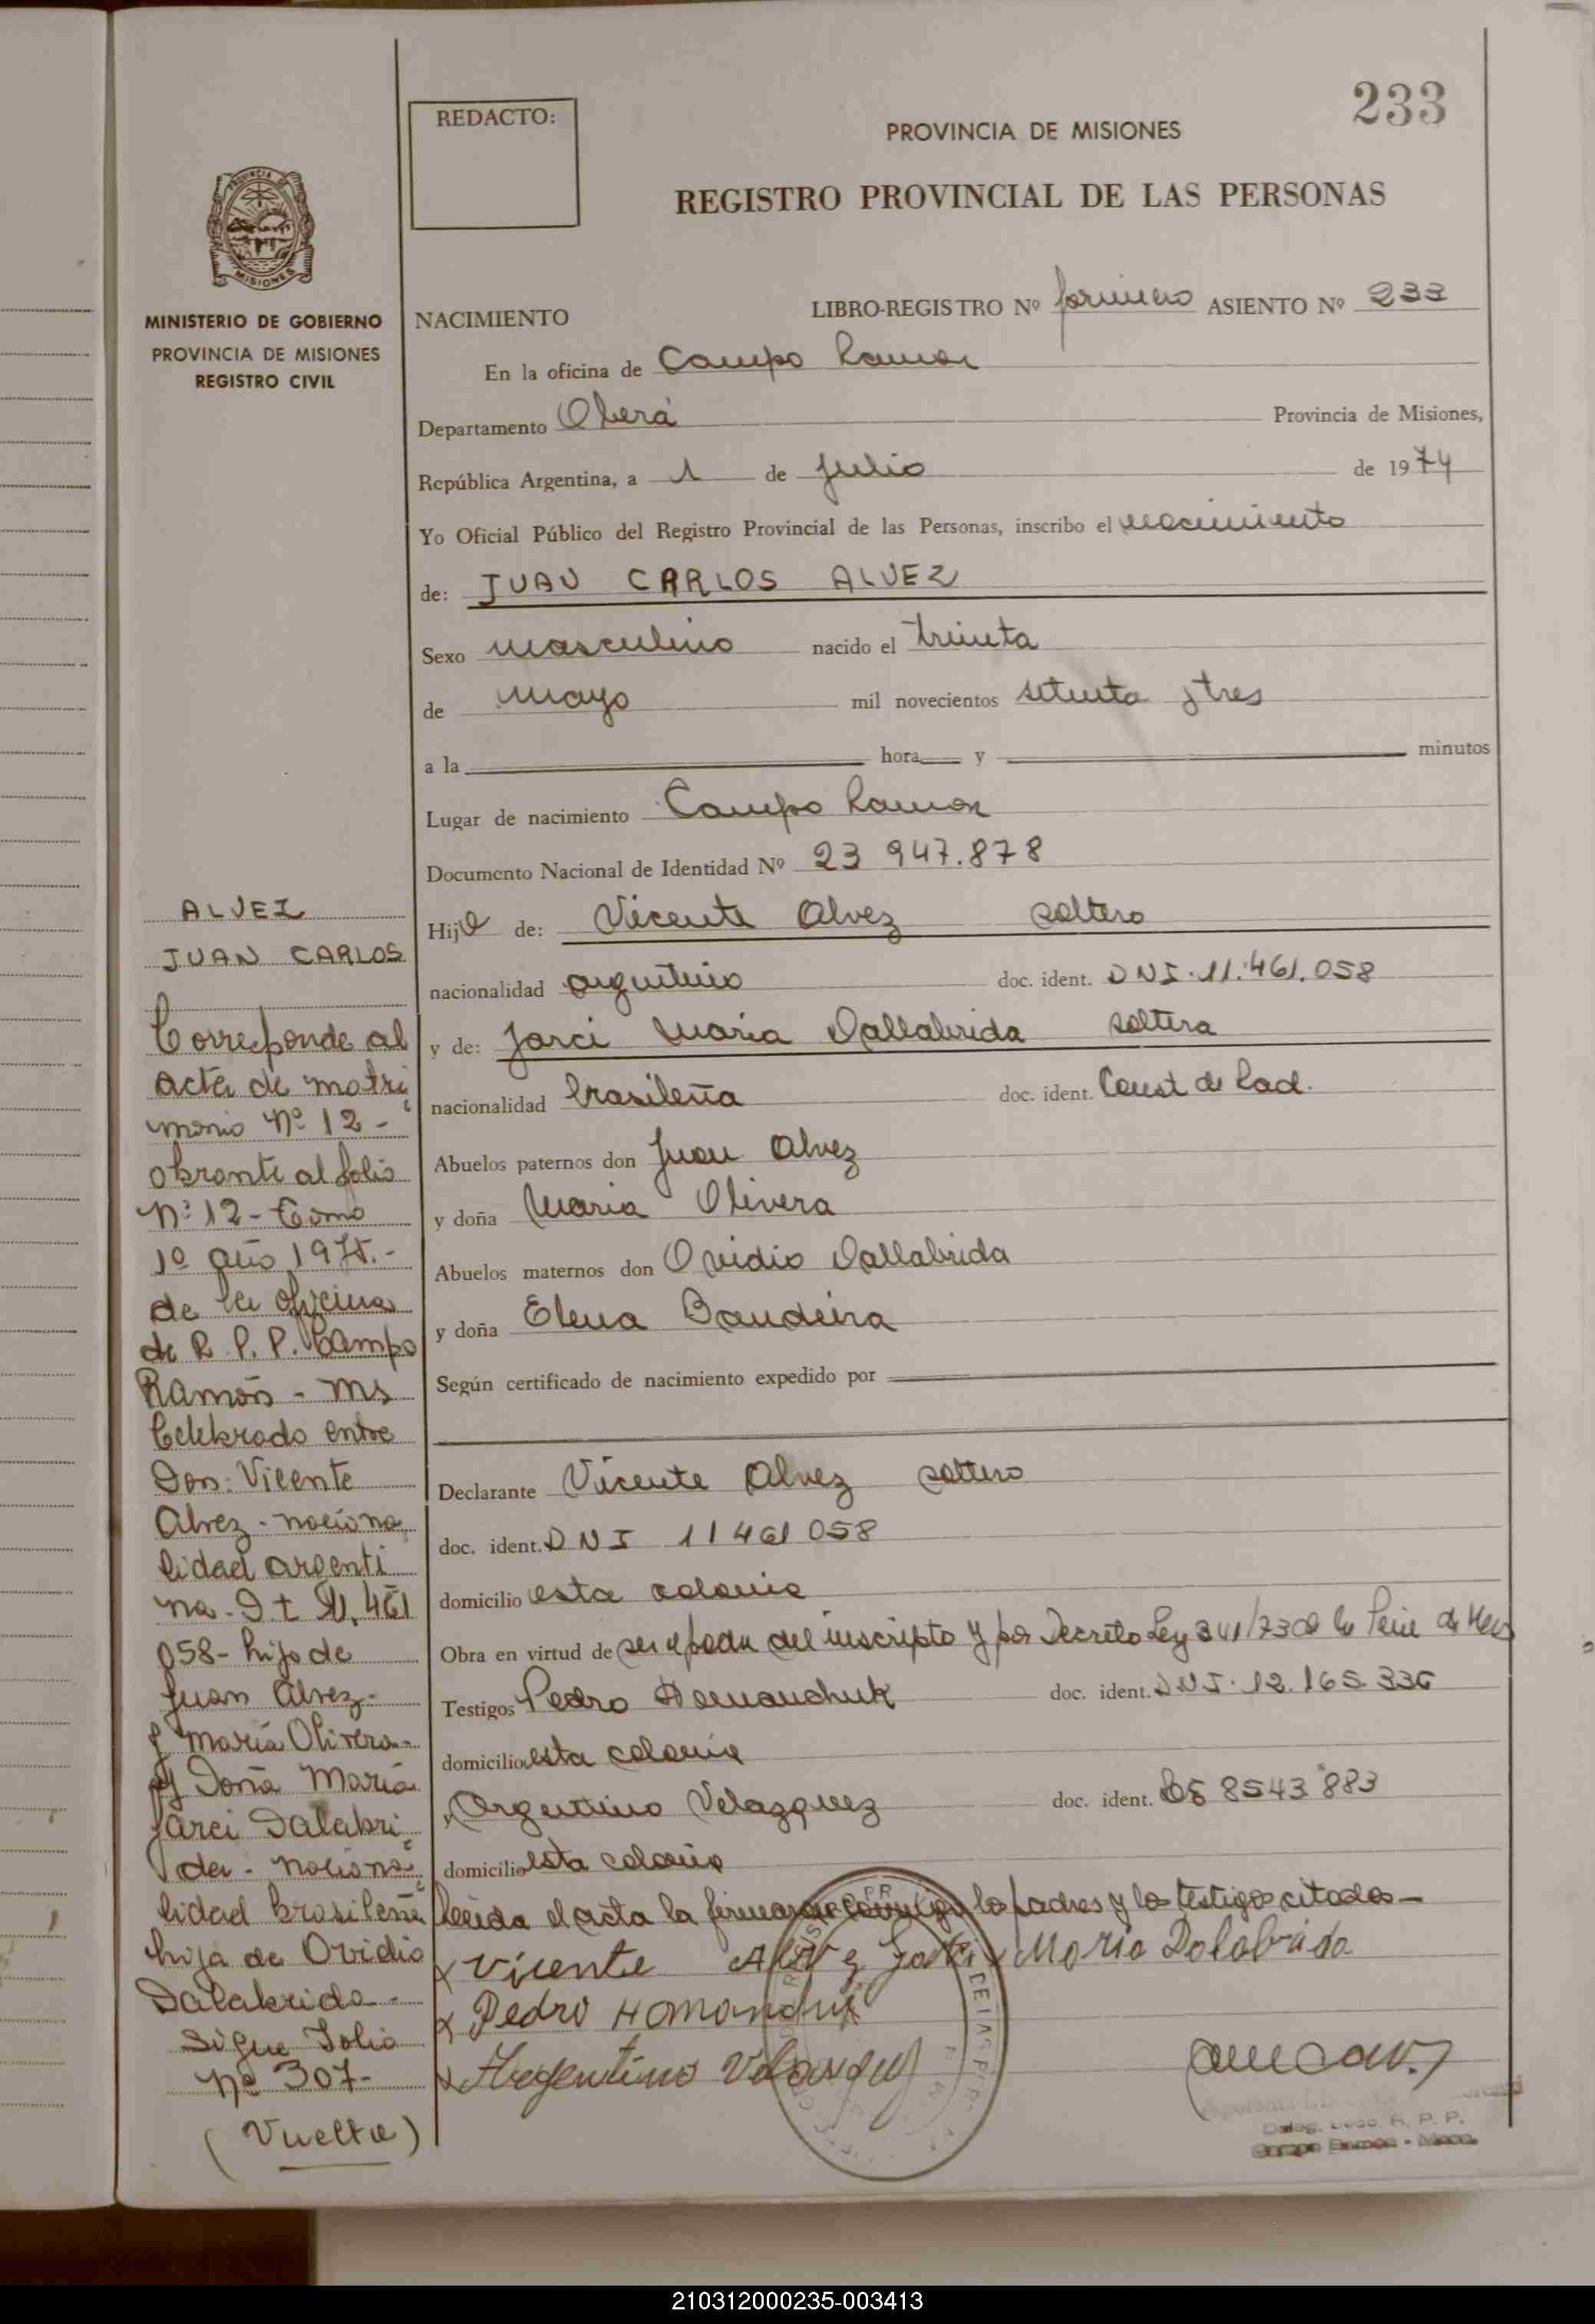 233
REDACTO:
PROVINCIA DE MISIONES
REGISTRO PROVINCIAL DE LAS PERSONAS
PROVINCIA DE
MISIONES
MINISTERIO DE GOBIERNO
PROVINCIA DE MISIONES
REGISTRO CIVIL
NACIMIENTO LIBRO-REGISTRO Nº primero ASIENTO Nº 233
En la oficina de Campo Ramon
Departamento Oberá Provincia de Misiones,
República Argentina, a 1 de Julio de 1974
Yo Oficial Público del Registro Provincial de las Personas, inscribo el nacimiento
de: JUAN CARLOS ALVEZ
Sexo masculino nacido el treinta
de mayo mil novecientos setenta y tres
a la hora y minutos
Lugar de nacimiento Campo Ramon
Documento Nacional de Identidad Nº 23 947.878
Hijo de: Vicente Alvez soltero
nacionalidad argentino doc. ident. DNI. 11.461.058
y de: Jarci Maria Dallabrida soltera
nacionalidad brasileña doc. ident. Const de Rad.
Abuelos paternos don Juan Alvez
y doña Maria Olivera
Abuelos maternos don Ovidio Dallabrida
y doña Elena Bandeira
Según certificado de nacimiento expedido por
Declarante Vicente Alvez soltero
doc. ident. DNI 11461058
domicilio esta colonia
Obra en virtud de ser el padre del inscripto y por Decreto Ley 341/73 de la
Testigos Pedro Homanchuk doc. ident. D.N.I. 12.165.336
domicilio esta colonia
y Argentino Velazquez doc. ident. 8543883
domicilio esta colonia
Leida el acta la firman conmigo los padres y los testigos citados-
x Vicente Alvez Jarci Maria Dalabrida
x Pedro Homanchuk
x Argentino Velazquez
Deleg. R. P. P.
Campo Ramón - Mnes.
ALVEZ
JUAN CARLOS
Corresponde al
acta de matri
monio Nº 12-
obrante al folio
Nº 12- Tomo
1º año 1975.-
de la oficina
de R. P. P. Campo
Ramón - Ms
Celebrado entre
Don: Vicente
Alvez - naciona
lidad argenti
na - D t 11.461
058- hijo de
Juan Alvez-
y María Olivera-
y Doña María
Jarci Dalabri
da - naciona
lidad brasileña
hija de Ovidio
Dalabrida-
Sigue Folio
Nº 307-
(Vuelta)
210312000235-003413